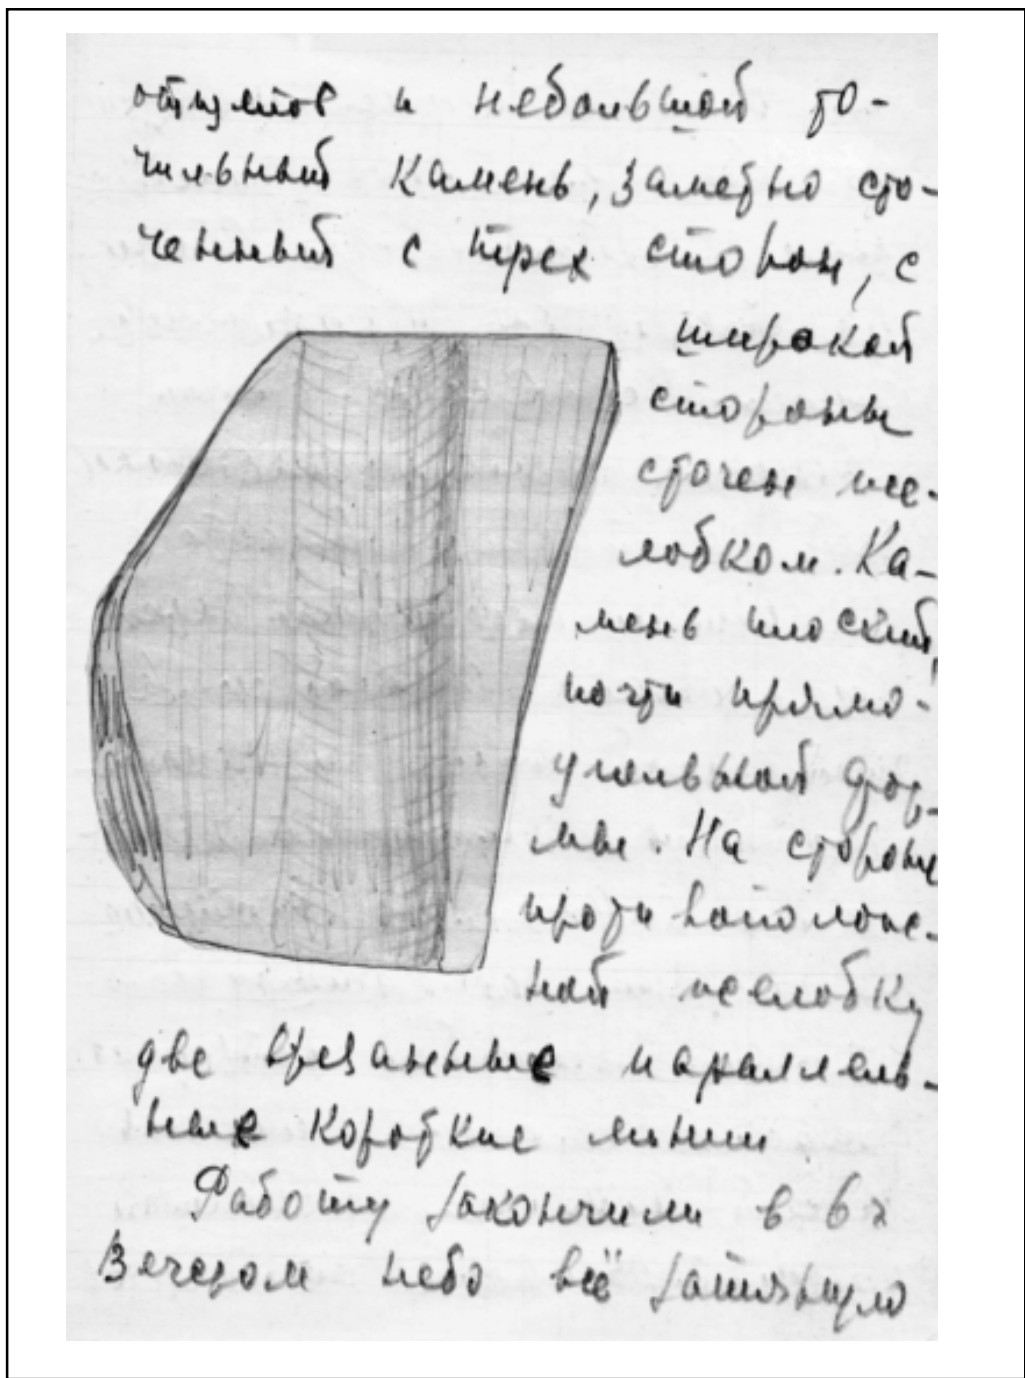 отщепов и небольшой то-
чильный камень, заметно сто-
ченный с трех сторон, с
широкой
стороны
сточен же-
лобком. Ка-
мень плоский,
почти прямо-
угольной фор-
мы. На стороне
противополож-
ной желобку
две врезанные параллель-
ные короткие линии
Работу закончили в 6 ч
Вечером небо всё затянуло